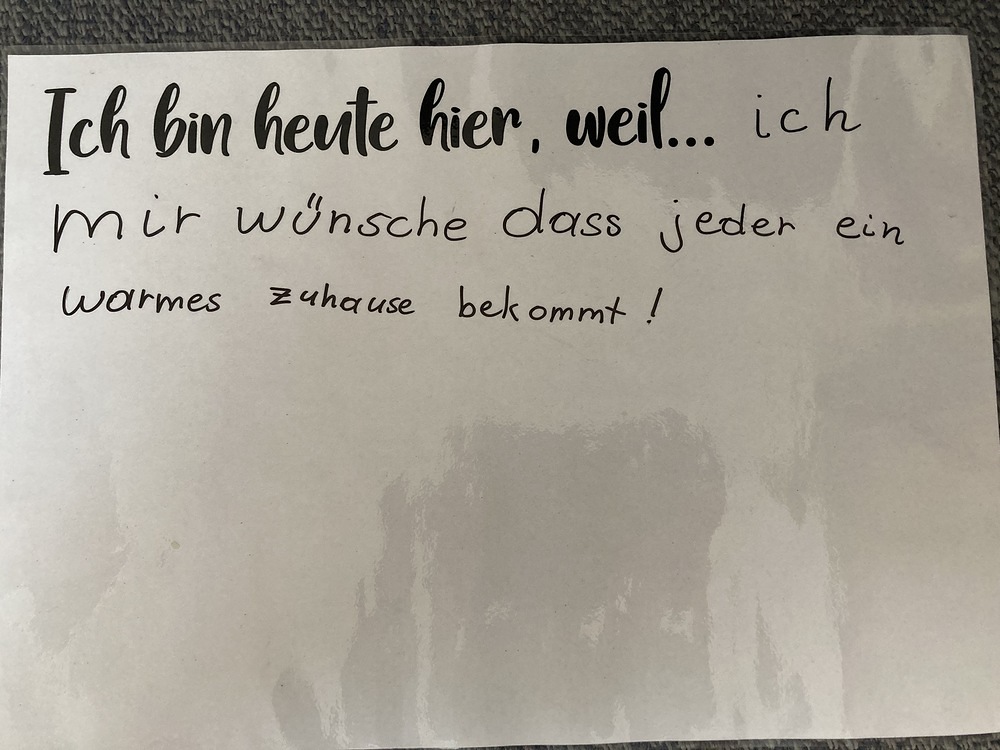 Ich bin heute hier, weil... ich
mir wünsche dass jeder ein
warmes zuhause bekommt!